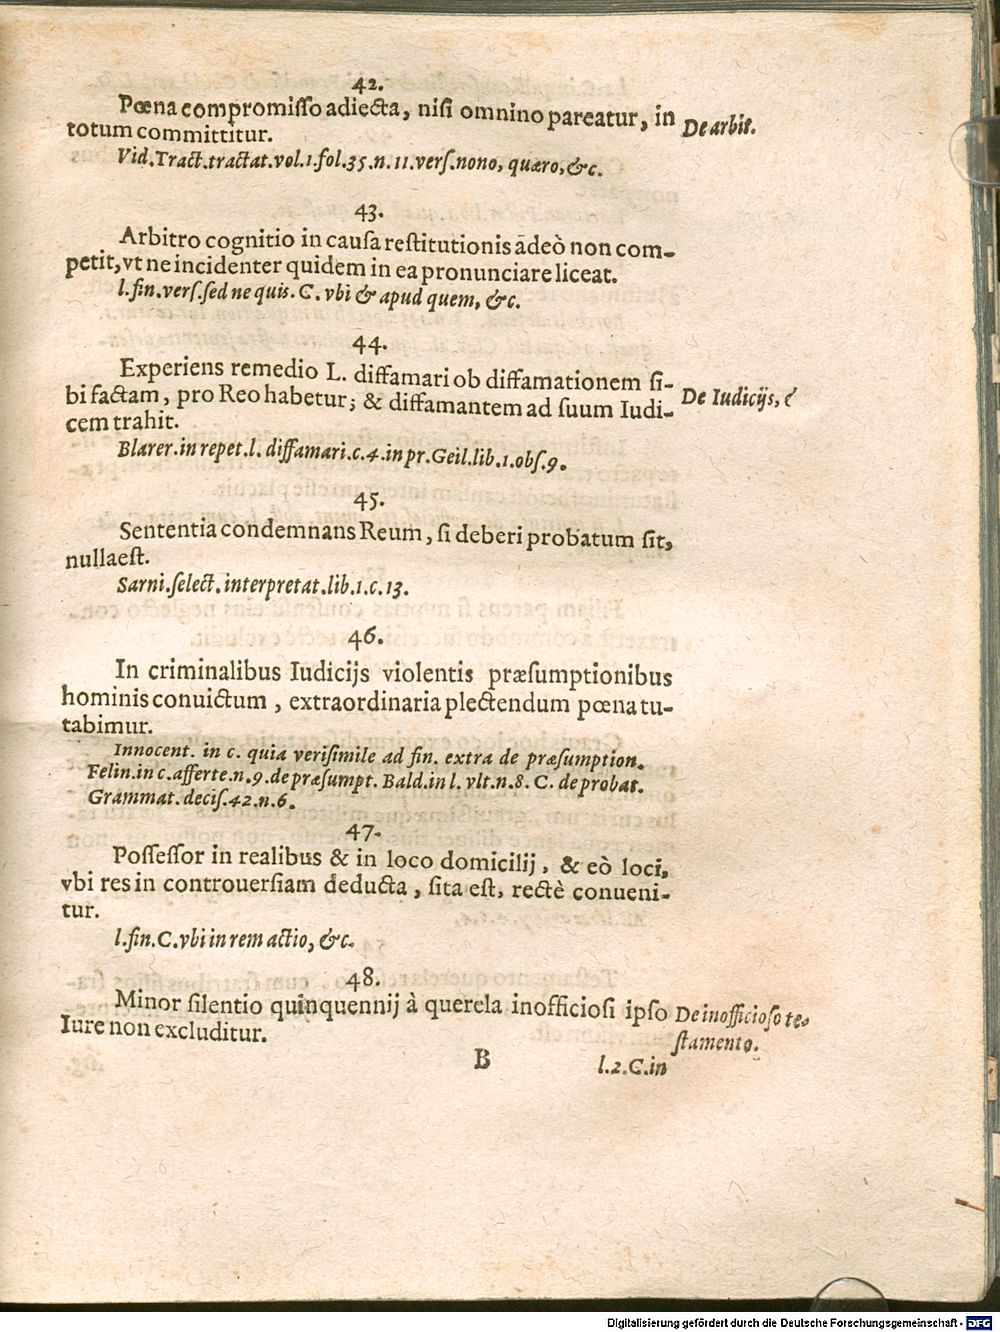 42.
Pœna compromisso adiecta, nisi omnino pareatur, in
De arbit.
totum committitur.
Vid. Tract. tractat. vol. 1. fol. 35. n. 11. vers. nono, quæro, &c.
43.
Arbitro cognitio in causa restitutionis adeò non com-
petit, vt ne incidenter quidem in ea pronunciare liceat.
l. fin. vers. sed ne quis. C. vbi & apud quem, &c.
44.
Experiens remedio L. diffamari ob diffamationem si-
De Iudicijs, &
bi factam, pro Reo habetur; & diffamantem ad suum Iudi-
cem trahit.
Blarer. in repet. l. diffamari. c. 4. in pr. Geil. lib. 1. obs. 9.
45.
Sententia condemnans Reum, si deberi probatum sit,
nulla est.
Sarni. select. interpretat. lib. 1. c. 13.
46.
In criminalibus Iudicijs violentis præsumptionibus
hominis conuictum, extraordinaria plectendum pœna tu-
tabimur.
Innocent. in c. quia verisimile ad fin. extra de præsumption.
Felin. in c. afferte. n. 9. de præsumpt. Bald. in l. vlt. n. 8. C. de probat.
Grammat. decis. 42. n. 6.
47.
Possessor in realibus & in loco domicilij, & eò loci,
vbi res in controuersiam deducta, sita est, rectè conueni-
tur.
l. fin. C. vbi in rem actio, &c.
48.
Minor silentio quinquennij à querela inofficiosi ipso
De inofficioso te-
Iure non excluditur.
stamento.
B
l. 2. C. in
Digitalisierung gefördert durch die Deutsche Forschungsgemeinschaft - DFG